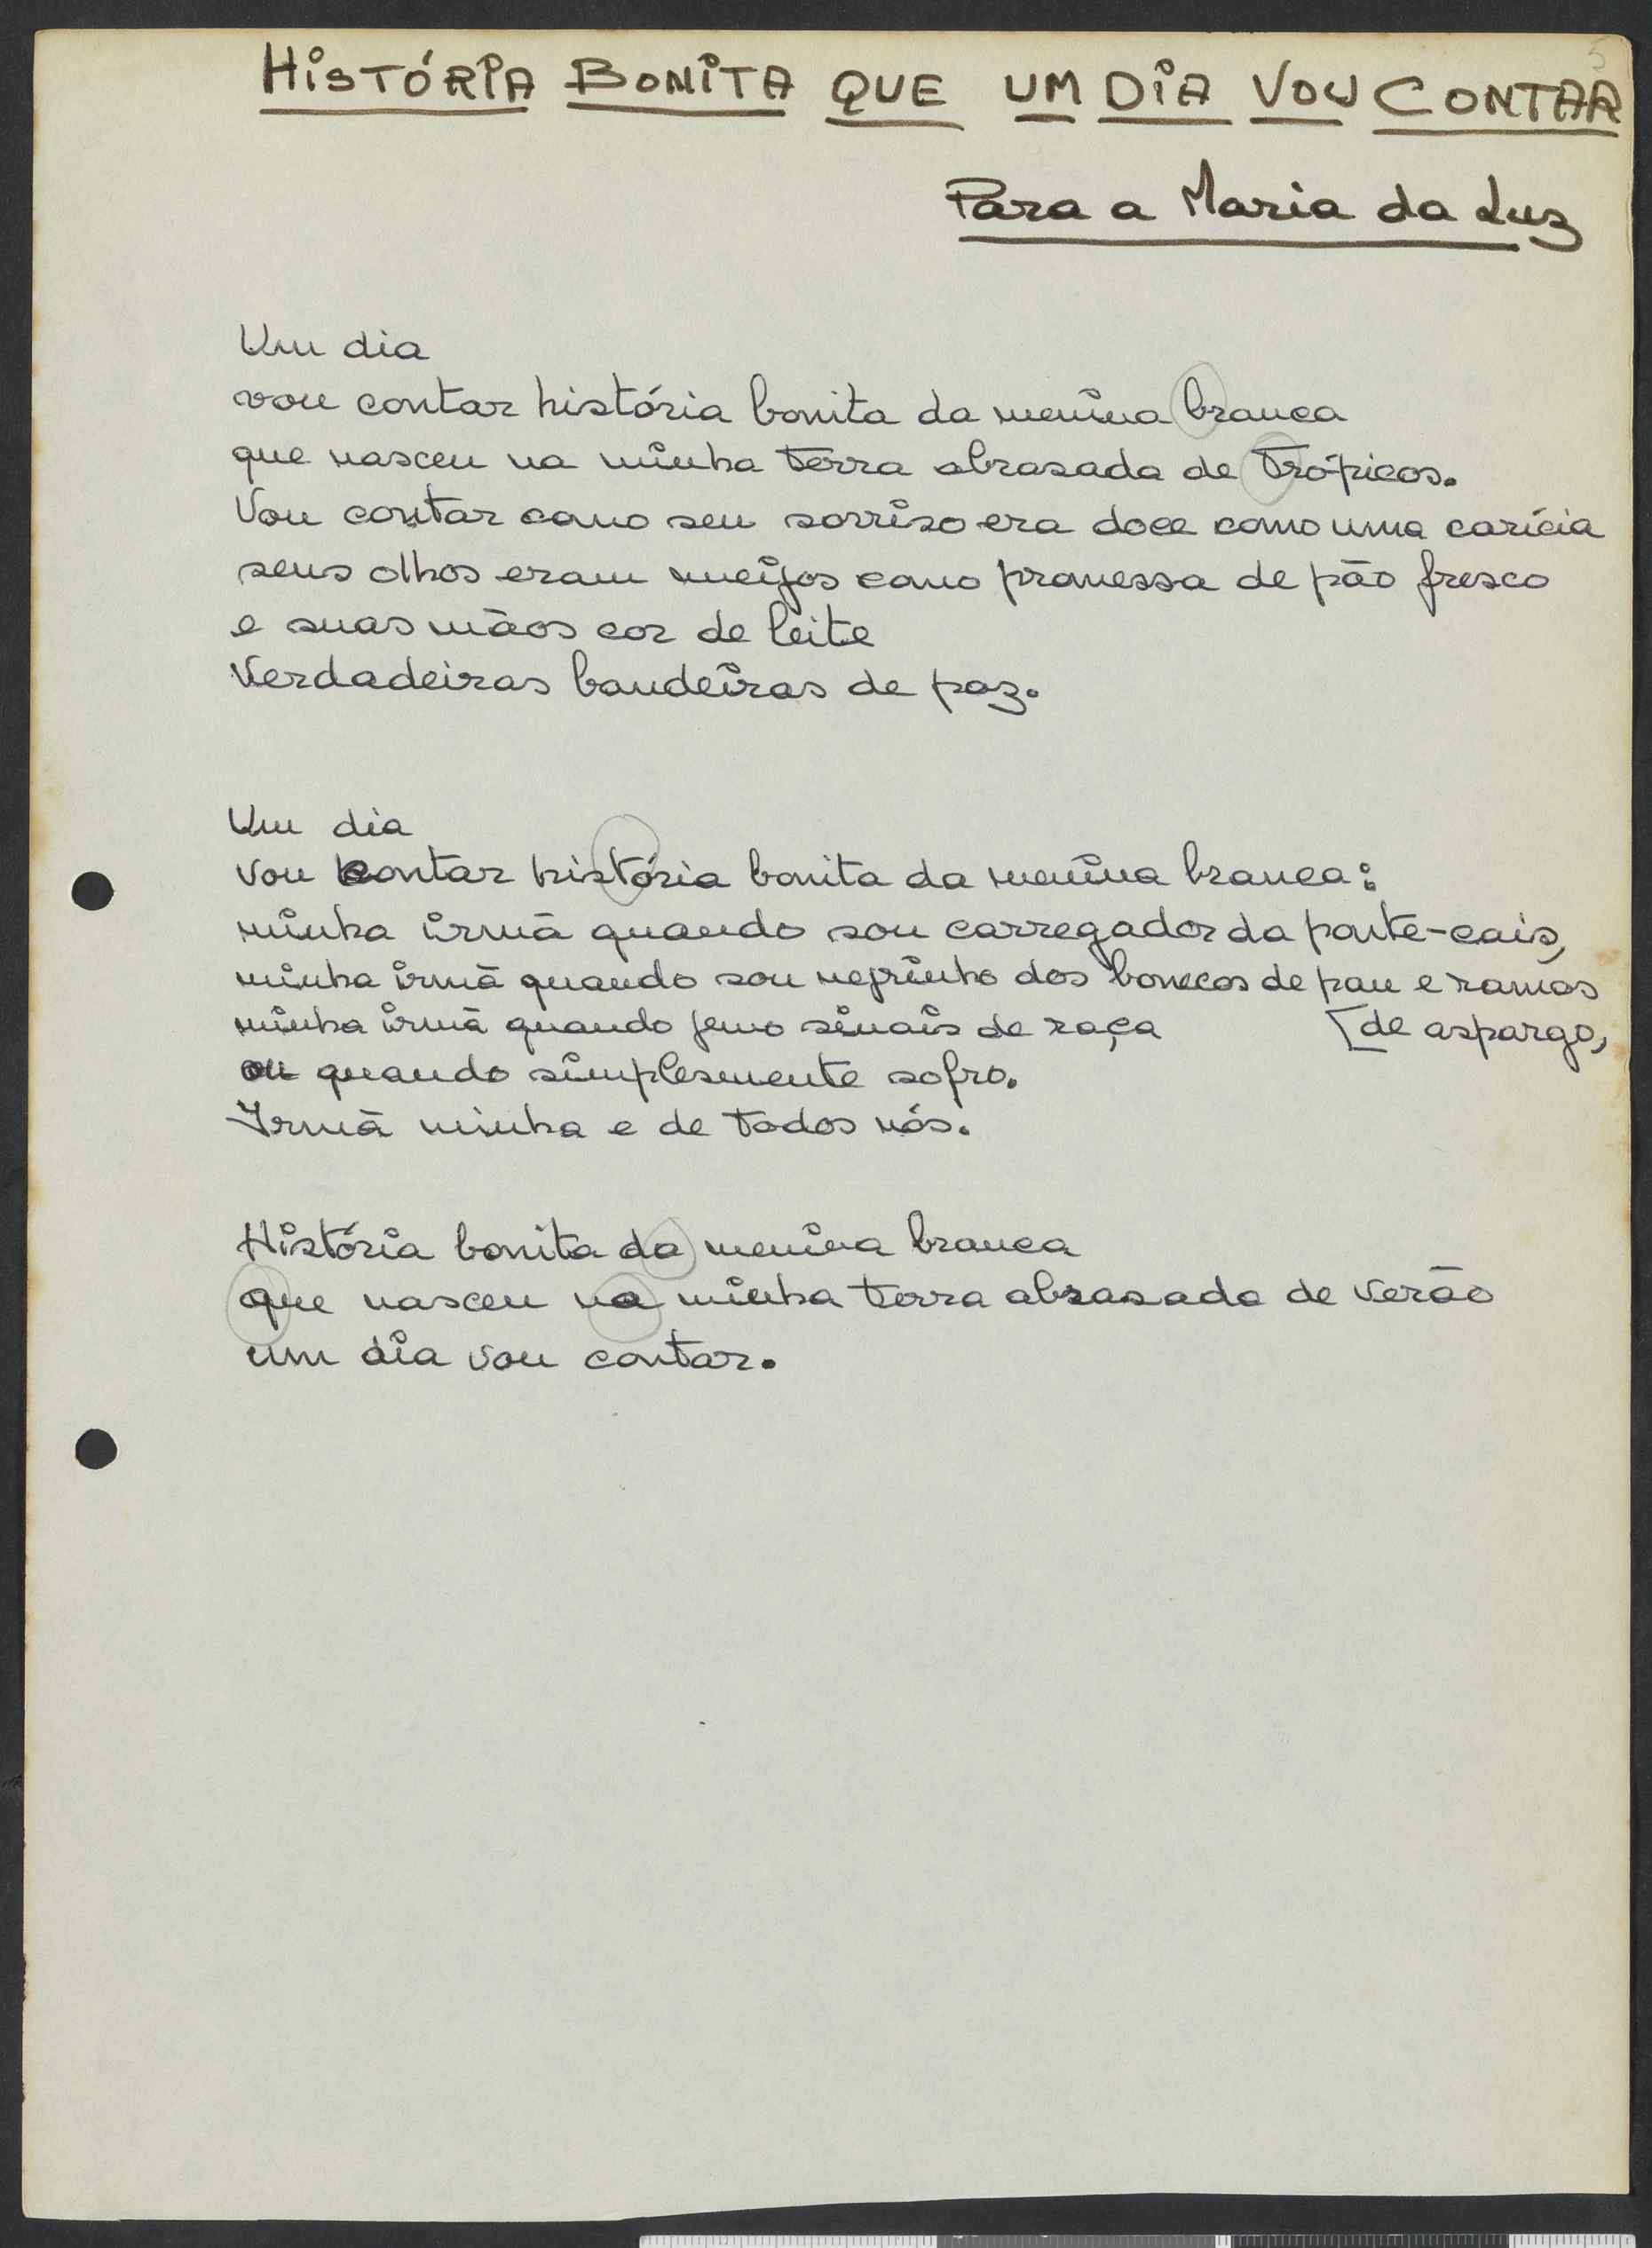 HISTÓRIA BONITA QUE UM DIA VOU CONTAR
Para a Maria da Luz
Um dia
vou contar história bonita da menina branca
que nasceu na minha terra abrasada de Trópicos.
Vou contar como seu sorriso era doce como uma carícia
seus olhos eram meigos como promessa de pão fresco
e suas mãos cor de leite
verdadeiras bandeiras de paz.
Um dia
vou contar história bonita da menina branca:
minha irmã quando sou carregador da ponte-cais,
minha irmã quando sou negrinho dos bonecos de pau e ramos
minha irmã quando gemo sinais de raça [de aspargo,
ou quando simplesmente sofro.
Irmã minha e de todos nós.
História bonita da menina branca
que nasceu na minha terra abrasada de verão
um dia vou contar.